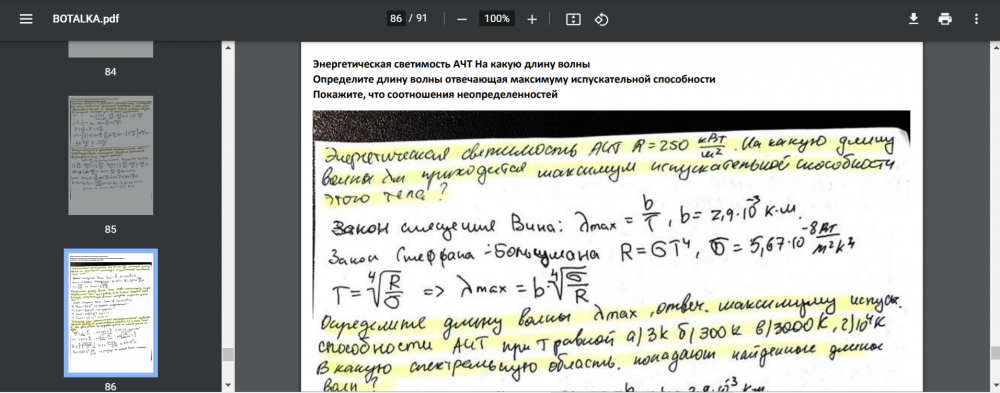 BOTALKA.pdf
86 / 91
100%
84
85
86
Энергетическая светимость АЧТ На какую длину волны
Определите длину волны отвечающая максимуму испускательной способности
Покажите, что соотношения неопределенностей
Энергетическая светимость АЧТ R = 250 кВт/м². На какую длину
волны λm приходится максимум испускательной способности
этого тела?
Закон смещения Вина: λmax = b/T, b = 2,9·10⁻³ К·м.
Закон Стефана-Больцмана R = σT⁴, σ = 5,67·10⁻⁸ Вт/м²К⁴
T = ⁴√(R/σ) => λmax = b·⁴√(σ/R)
Определите длину волны λmax, отвеч. максимуму испуск.
способности АЧТ при T равной а) 3К б) 300К в) 3000К, г) 10⁴К
В какую спектральную область попадают найденные длины
волн?